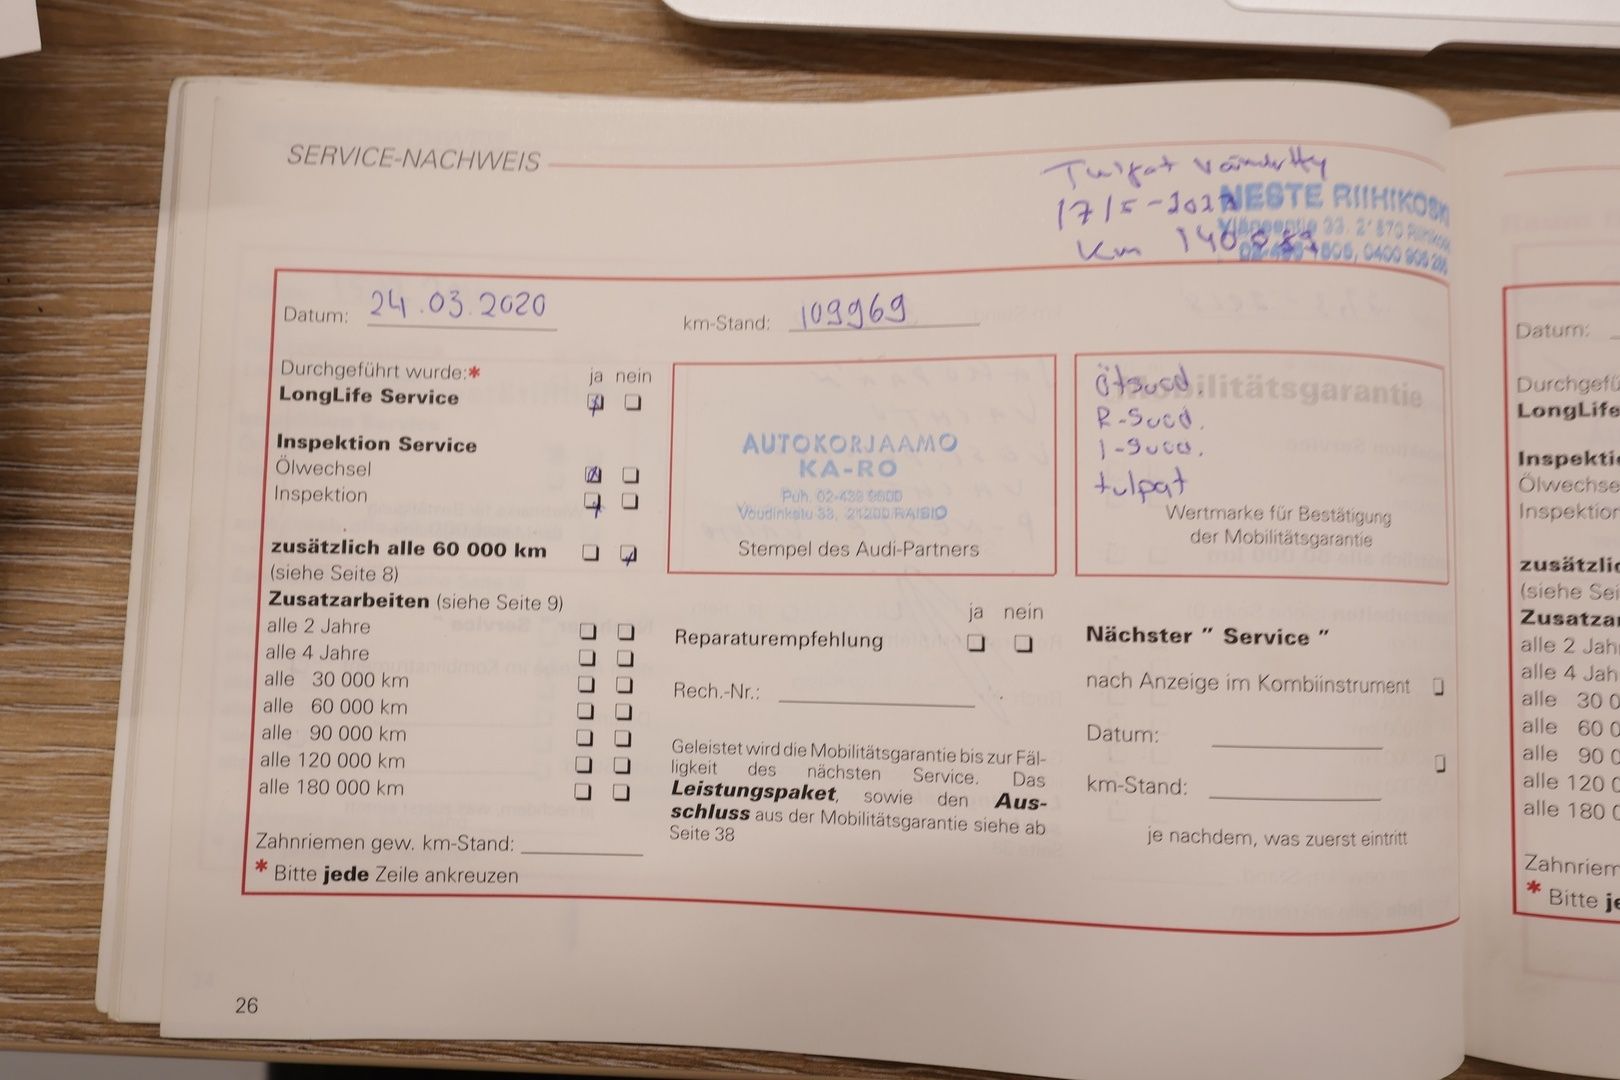 SERVICE-NACHWEIS
Tulpat
17/5-
NESTE RIIHIKOSKI
Km 140
0400
Datum: 24.03.2020
km-Stand: 109969
Durchgeführt wurde:*
ja nein
LongLife Service
Inspektion Service
Ölwechsel
Inspektion
zusätzlich alle 60 000 km
(siehe Seite 8)
Zusatzarbeiten (siehe Seite 9)
alle 2 Jahre
alle 4 Jahre
alle 30 000 km
alle 60 000 km
alle 90 000 km
alle 120 000 km
alle 180 000 km
Zahnriemen gew. km-Stand:
* Bitte jede Zeile ankreuzen
AUTOKORJAAMO
KA-RO
Puh. 02-439 9600
Voudinkatu 33, 21200 RAISIO
Stempel des Audi-Partners
Mobilitätsgarantie
R-Suod.
I-Suod.
tulpat
Wertmarke für Bestätigung
der Mobilitätsgarantie
ja nein
Reparaturempfehlung
Rech.-Nr.:
Geleistet wird die Mobilitätsgarantie bis zur Fäl-
ligkeit des nächsten Service. Das
Leistungspaket, sowie den Aus-
schluss aus der Mobilitätsgarantie siehe ab
Seite 38
Nächster " Service "
nach Anzeige im Kombiinstrument
Datum:
km-Stand:
je nachdem, was zuerst eintritt
26
Datum:
Durchgefü
LongLife
Inspektio
Ölwechse
Inspektion
zusätzlic
(siehe Sei
Zusatzar
alle 2 Jah
alle 4 Jah
alle 30 0
alle 60 0
alle 90 0
alle 120 0
alle 180 0
Zahnriem
* Bitte je